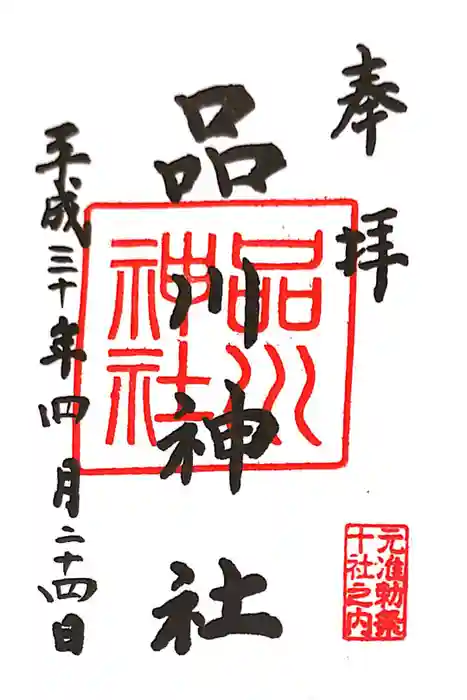 奉拝
品川神社
品川神社
平成三十年四月二十四日
元准勅祭
十社之内